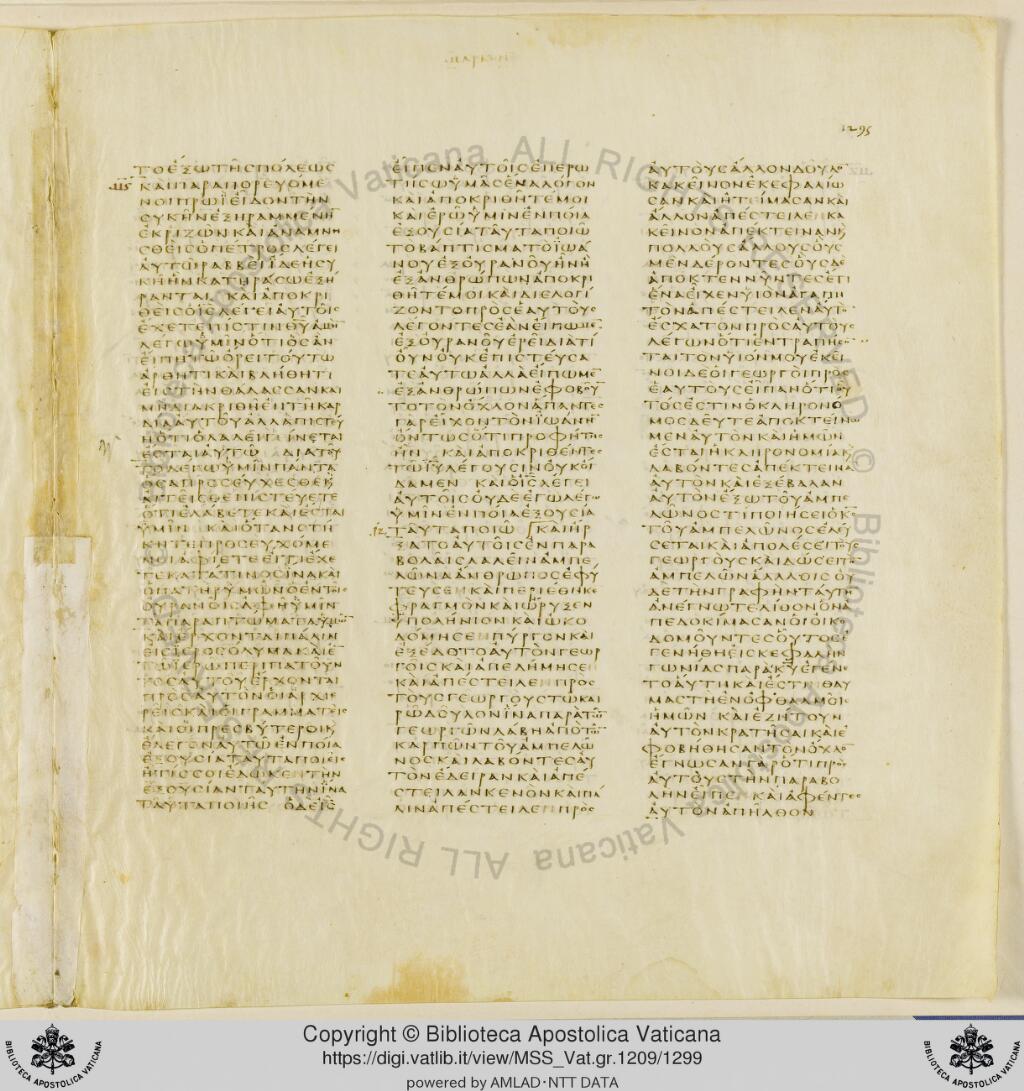 ΤΟΕΞΩΤΗΣΠΟΛΕΩΣ
ΚΑΙΠΑΡΑΠΟΡΕΥΟΜΕ
ΝΟΙΠΡΩΪΕΙΔΟΝΤΗΝ
ΣΥΚΗΝΕΞΗΡΑΜΜΕΝΗ̅
ΕΚΡΙΖΩΝΚΑΙΑΝΑΜΝΗ
ΣΘΕΙΣΟΠΕΤΡΟΣΛΕΓΕΙ
ΑΥΤΩΡΑΒΒΕΙΪΔΕΗΣΥ
ΚΗΗΝΚΑΤΗΡΑΣΩΕΞΗ
ΡΑΝΤΑΙ ΚΑΙΑΠΟΚΡΙ
ΘΕΙΣΟΙΣΛΕΓΕΙΑΥΤΟΙΣ
ΕΧΕΤΕΠΙΣΤΙΝΘΥΑΜΗ̅
ΛΕΓΩΥΜΙΝΟΤΙΟΣΑΝ
ΕΙΠΗΤΩΟΡΕΙΤΟΥΤΩ
ΑΡΘΗΤΙΚΑΙΒΛΗΘΗΤΙ
ΕΙΣΤΗΝΘΑΛΑΣΣΑΝΚΑΙ
ΜΗΔΙΑΚΡΙΘΗΕΝΤΗΚΑΡ
ΔΙΑΑΥΤΟΥΑΛΛΑΠΙΣΤΕΥ
ΗΟΤΙΟΛΑΛΕΙΓΕΙΝΕΤΑΙ
ΕΣΤΑΙΑΥΤΩ ΔΙΑΤΟΥ
ΤΟΛΕΓΩΥΜΙΝΠΑΝΤΑ
ΟΣΑΠΡΟΣΕΥΧΕΣΘΕΚ
ΑΙΤΕΙΣΘΕΠΙΣΤΕΥΕΤΕ
ΟΤΙΕΛΑΒΕΤΕΚΑΙΕΣΤΑΙ
ΥΜΙΝ ΚΑΙΟΤΑΝΣΤΗ
ΚΗΤΕΠΡΟΣΕΥΧΟΜΕ
ΝΟΙΑΦΙΕΤΕΕΙΤΙΕΧΕ
ΤΕΚΑΤΑΤΙΝΟΣΙΝΑΚΑΙ
ΟΠΑΤΗΡΥΜΩΝΟΕΝΤΟΙΣ
ΟΥΡΑΝΟΙΣΑΦΗΥΜΙΝ
ΤΑΠΑΡΑΠΤΩΜΑΤΑΥΜΩ̅
ΚΑΙΕΡΧΟΝΤΑΙΠΑΛΙΝ
ΕΙΣΪΕΡΟΣΟΛΥΜΑΚΑΙΕ̅
ΤΩΪΕΡΩΠΕΡΙΠΑΤΟΥΝ
ΤΟΣΑΥΤΟΥΕΡΧΟΝΤΑΙ
ΠΡΟΣΑΥΤΟΝΟΙΑΡΧΙΕ
ΡΕΙΣΚΑΙΟΙΓΡΑΜΜΑΤΕΙΣ
ΚΑΙΟΙΠΡΕΣΒΥΤΕΡΟΙΚ
ΕΛΕΓΟΝΑΥΤΩΕΝΠΟΙΑ
ΕΞΟΥΣΙΑΤΑΥΤΑΠΟΙΕΙΣ
ΗΤΙΣΣΟΙΕΔΩΚΕΝΤΗΝ
ΕΞΟΥΣΙΑΝΤΑΥΤΗΝΙΝΑ
ΤΑΥΤΑΠΟΙΗΣ ΟΔΕΙ̅Σ̅
ΕΙΠΕΝΑΥΤΟΙΣΕΠΕΡΩ
ΤΗΣΩΥΜΑΣΕΝΑΛΟΓΟΝ
ΚΑΙΑΠΟΚΡΙΘΗΤΕΜΟΙ
ΚΑΙΕΡΩΥΜΙΝΕΝΠΟΙΑ
ΕΞΟΥΣΙΑΤΑΥΤΑΠΟΙΩ
ΤΟΒΑΠΤΙΣΜΑΤΟΪΩΑ
ΝΟΥΕΞΟΥΡΑΝΟΥΗΝΗ
ΕΞΑΝΘΡΩΠΩΝΑΠΟΚΡΙ
ΘΗΤΕΜΟΙΚΑΙΔΙΕΛΟΓΙ
ΖΟΝΤΟΠΡΟΣΕΑΥΤΟΥΣ
ΛΕΓΟΝΤΕΣΕΑΝΕΙΠΩΜΕ̅
ΕΞΟΥΡΑΝΟΥΕΡΕΙΔΙΑΤΙ
ΟΥΝΟΥΚΕΠΙΣΤΕΥΣΑ
ΤΕΑΥΤΩΑΛΛΑΕΙΠΩΜΕ̅
ΕΞΑΝΘΡΩΠΩΝΕΦΟΒΟΥ̅
ΤΟΤΟΝΟΧΛΟΝΑΠΑΝΤΕΣ
ΓΑΡΕΙΧΟΝΤΟΝΪΩΑΝΗ
ΟΝΤΩΣΟΤΙΠΡΟΦΗΤΗΣ
ΗΝ ΚΑΙΑΠΟΚΡΙΘΕΝΤΕΣ
ΤΩΙ̅Υ̅ΛΕΓΟΥΣΙΝΟΥΚΟΙ
ΔΑΜΕΝ ΚΑΙΟΙ̅Σ̅ΛΕΓΕΙ
ΑΥΤΟΙΣΟΥΔΕΕΓΩΛΕΓΩ
ΥΜΙΝΕΝΠΟΙΑΕΞΟΥΣΙΑ
ΤΑΥΤΑΠΟΙΩ ΚΑΙΗΡ
ΞΑΤΟΑΥΤΟΙΣΕΝΠΑΡΑ
ΒΟΛΑΙΣΛΑΛΕΙΝΑΜΠΕ
ΛΩΝΑΑΝΘΡΩΠΟΣΕΦΥ
ΤΕΥΣΕΝΚΑΙΠΕΡΙΕΘΗΚΕ
ΦΡΑΓΜΟΝΚΑΙΩΡΥΞΕΝ
ΥΠΟΛΗΝΙΟΝΚΑΙΩΚΟ
ΔΟΜΗΣΕΝΠΥΡΓΟΝΚΑΙ
ΕΞΕΔΕΤΟΑΥΤΟΝΓΕΩΡ
ΓΟΙΣΚΑΙΑΠΕΔΗΜΗΣΕ
ΚΑΙΑΠΕΣΤΕΙΛΕΝΠΡΟΣ
ΤΟΥΣΓΕΩΡΓΟΥΣΤΩΚΑΙ
ΡΩΔΟΥΛΟΝΙΝΑΠΑΡΑΤΩ̅
ΓΕΩΡΓΩΝΛΑΒΗΑΠΟΤΩ̅
ΚΑΡΠΩΝΤΟΥΑΜΠΕΛΩ
ΝΟΣΚΑΙΛΑΒΟΝΤΕΣΑΥ
ΤΟΝΕΔΕΙΡΑΝΚΑΙΑΠΕ
ΣΤΕΙΛΑΝΚΕΝΟΝΚΑΙΠΑ
ΛΙΝΑΠΕΣΤΕΙΛΕΝΠΡΟΣ
ΑΥΤΟΥΣΑΛΛΟΝΔΟΥΛΟ̅
ΚΑΚΕΙΝΟΝΕΚΕΦΑΛΙΩ
ΣΑΝΚΑΙΗΤΕΙΜΑΣΑΝΚΑΙ
ΑΛΛΟΝΑΠΕΣΤΕΙΛΕΝΚΑ
ΚΕΙΝΟΝΑΠΕΚΤΕΙΝΑΝΚ
ΠΟΛΛΟΥΣΑΛΛΟΥΣΟΥΣ
ΜΕΝΔΕΡΟΝΤΕΣΟΥΣΔΕ
ΑΠΟΚΤΕΝΝΥΝΤΕΣΕΤΙ
ΕΝΑΕΙΧΕΝΥΙΟΝΑΓΑΠΗ
ΤΟΝΑΠΕΣΤΕΙΛΕΝΑΥΤΟ̅
ΕΣΧΑΤΟΝΠΡΟΣΑΥΤΟΥΣ
ΛΕΓΩΝΟΤΙΕΝΤΡΑΠΗΣΟ̅
ΤΑΙΤΟΝΥΙΟΝΜΟΥΕΚΕΙ
ΝΟΙΔΕΟΙΓΕΩΡΓΟΙΠΡΟΣ
ΕΑΥΤΟΥΣΕΙΠΑΝΟΤΙΟΥ
ΤΟΣΕΣΤΙΝΟΚΛΗΡΟΝΟ
ΜΟΣΔΕΥΤΕΑΠΟΚΤΕΙΝΩ
ΜΕΝΑΥΤΟΝΚΑΙΗΜΩΝ
ΕΣΤΑΙΗΚΛΗΡΟΝΟΜΙΑΚ
ΛΑΒΟΝΤΕΣΑΠΕΚΤΕΙΝΑ
ΑΥΤΟΝΚΑΙΕΞΕΒΑΛΑΝ
ΑΥΤΟΝΕΞΩΤΟΥΑΜΠΕ
ΛΩΝΟΣΤΙΠΟΙΗΣΕΙΟΚ̅
ΤΟΥΑΜΠΕΛΩΝΟΣΕΛΕΥ
ΣΕΤΑΙΚΑΙΑΠΟΛΕΣΕΙΤΟΥΣ
ΓΕΩΡΓΟΥΣΚΑΙΔΩΣΕΙΤΟ̅
ΑΜΠΕΛΩΝΑΑΛΛΟΙΣΟΥ
ΔΕΤΗΝΓΡΑΦΗΝΤΑΥΤΗ̅
ΑΝΕΓΝΩΤΕΛΙΘΟΝΟΝΑ
ΠΕΔΟΚΙΜΑΣΑΝΟΙΟΙΚΟ
ΔΟΜΟΥΝΤΕΣΟΥΤΟΣΕ
ΓΕΝΗΘΗΕΙΣΚΕΦΑΛΗΝ
ΓΩΝΙΑΣΠΑΡΑΚ̅Υ̅ΕΓΕΝΕ
ΤΟΑΥΤΗΚΑΙΕΣΤΙΝΘΑΥ
ΜΑΣΤΗΕΝΟΦΘΑΛΜΟΙΣ
ΗΜΩΝ ΚΑΙΕΖΗΤΟΥΝ
ΑΥΤΟΝΚΡΑΤΗΣΑΙΚΑΙΕ
ΦΟΒΗΘΗΣΑΝΤΟΝΟΧΛΟ̅
ΕΓΝΩΣΑΝΓΑΡΟΤΙΠΡΟΣ
ΑΥΤΟΥΣΤΗΝΠΑΡΑΒΟ
ΛΗΝΕΙΠΕ ΚΑΙΑΦΕΝΤΕΣ
ΑΥΤΟΝΑΠΗΛΘΟΝ
1295
Copyright © Biblioteca Apostolica Vaticana
https://digi.vatlib.it/view/MSS_Vat.gr.1209/1299
powered by AMLAD·NTT DATA
BIBLIOTECA APOSTOLICA VATICANA
BIBLIOTECA APOSTOLICA VATICANA